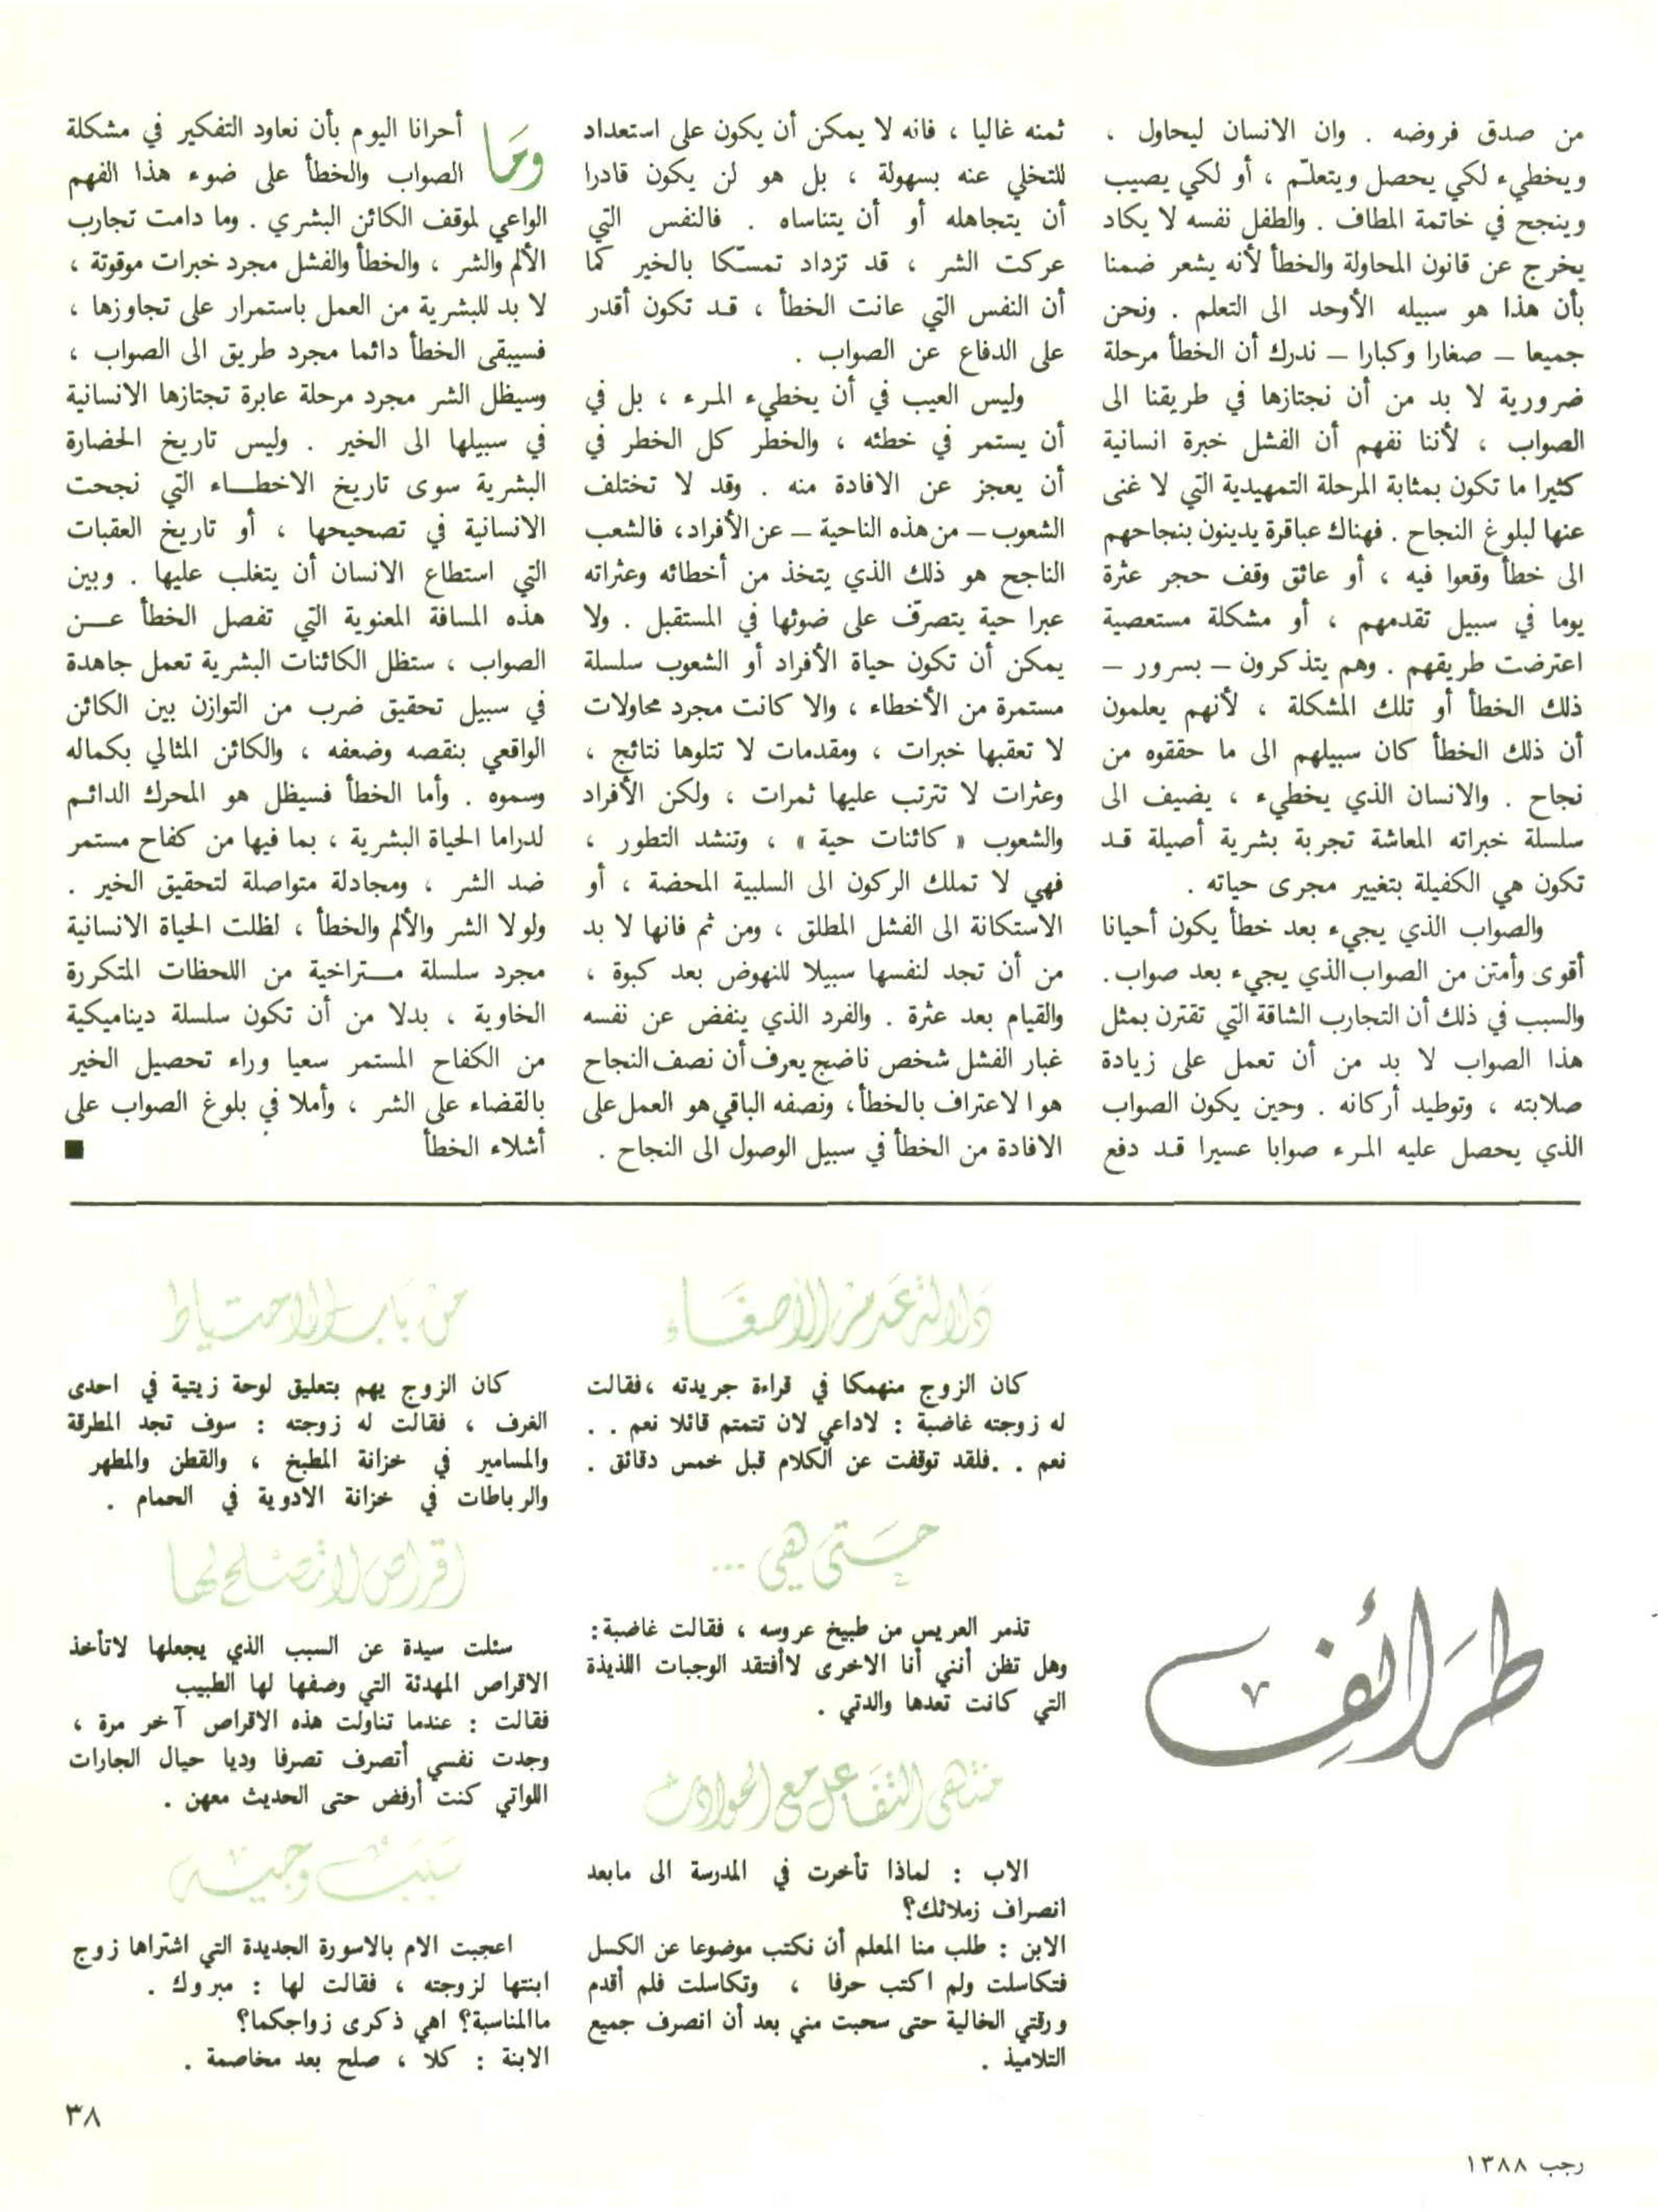 من صدق فروضه . وان الانسان ليحاول ،
ويخطيء لكي يحصل ويتعلّم ، أو لكي يصيب
وينجح في خاتمة المطاف . والطفل نفسه لا يكاد
يخرج عن قانون المحاولة والخطأ لأنه يشعر ضمنا
بأن هذا هو سبيله الأوحد الى التعلم . ونحن
جميعا – صغارا وكبارا – ندرك أن الخطأ مرحلة
ضرورية لا بد من أن نجتازها في طريقنا الى
الصواب ، لأننا نفهم أن الفشل خبرة انسانية
كثيرا ما تكون بمثابة المرحلة التمهيدية التي لا غنى
عنها لبلوغ النجاح . فهناك عباقرة يدينون بنجاحهم
الى خطأ وقعوا فيه ، أو عائق وقف حجر عثرة
يوما في سبيل تقدمهم ، أو مشكلة مستعصية
اعترضت طريقهم . وهم يتذكرون – بسرور –
ذلك الخطأ أو تلك المشكلة ، لأنهم يعلمون
أن ذلك الخطأ كان سبيلهم الى ما حققوه من
نجاح . والانسان الذي يخطيء ، يضيف الى
سلسلة خبراته المعاشة تجربة بشرية أصيلة قد
تكون هي الكفيلة بتغيير مجرى حياته .
والصواب الذي يجيء بعد خطأ يكون أحيانا
أقوى وأمتن من الصواب الذي يجيء بعد صواب .
والسبب في ذلك أن التجارب الشاقة التي تقترن بمثل
هذا الصواب لا بد من أن تعمل على زيادة
صلابته ، وتوطيد أركانه . وحين يكون الصواب
الذي يحصل عليه المرء صوابا عسيرا قد دفع
ثمنه غاليا ، فانه لا يمكن أن يكون على استعداد
للتخلي عنه بسهولة ، بل هو لن يكون قادرا
أن يتجاهله أو أن يتناساه . فالنفس التي
عركت الشر ، قد تزداد تمسّكا بالخير كما
أن النفس التي عانت الخطأ ، قد تكون أقدر
على الدفاع عن الصواب .
وليس العيب في أن يخطيء المرء ، بل في
أن يستمر في خطئه ، والخطر كل الخطر في
أن يعجز عن الافادة منه . وقد لا تختلف
الشعوب – من هذه الناحية – عن الأفراد، فالشعب
الناجح هو ذلك الذي يتخذ من أخطائه وعثراته
عبرا حية يتصرّف على ضوئها في المستقبل . ولا
يمكن أن تكون حياة الأفراد أو الشعوب سلسلة
مستمرة من الأخطاء ، والا كانت مجرد محاولات
لا تعقبها خبرات ، ومقدمات لا تتلوها نتائج ،
وعثرات لا تترتب عليها ثمرات ، ولكن الأفراد
والشعوب « كائنات حية » ، وتنشد التطور ،
فهي لا تملك الركون الى السلبية المحضة ، أو
الاستكانة الى الفشل المطلق ، ومن ثم فانها لا بد
من أن تجد لنفسها سبيلا للنهوض بعد كبوة ،
والقيام بعد عثرة . والفرد الذي ينفض عن نفسه
غبار الفشل شخص ناضج يعرف أن نصف النجاح
هو الاعتراف بالخطأ، ونصفه الباقي هو العمل على
الافادة من الخطأ في سبيل الوصول الى النجاح .
وَمَا أحرانا اليوم بأن نعاود التفكير في مشكلة
الصواب والخطأ على ضوء هذا الفهم
الواعي لموقف الكائن البشري . وما دامت تجارب
الألم والشر ، والخطأ والفشل مجرد خبرات موقوتة ،
لا بد للبشرية من العمل باستمرار على تجاوزها ،
فسيبقى الخطأ دائما مجرد طريق الى الصواب ،
وسيظل الشر مجرد مرحلة عابرة تجتازها الانسانية
في سبيلها الى الخير . وليس تاريخ الحضارة
البشرية سوى تاريخ الاخطاء التي نجحت
الانسانية في تصحيحها ، أو تاريخ العقبات
التي استطاع الانسان أن يتغلب عليها . وبين
هذه المسافة المعنوية التي تفصل الخطأ عن
الصواب ، ستظل الكائنات البشرية تعمل جاهدة
في سبيل تحقيق ضرب من التوازن بين الكائن
الواقعي بنقصه وضعفه ، والكائن المثالي بكماله
وسموه . وأما الخطأ فسيظل هو المحرك الدائم
لدراما الحياة البشرية ، بما فيها من كفاح مستمر
ضد الشر ، ومجادلة متواصلة لتحقيق الخير .
ولولا الشر والألم والخطأ ، لظلت الحياة الانسانية
مجرد سلسلة متراخية من اللحظات المتكررة
الخاوية ، بدلا من أن تكون سلسلة ديناميكية
من الكفاح المستمر سعيا وراء تحصيل الخير
بالقضاء على الشر ، وأملا في بلوغ الصواب على
أشلاء الخطأ ■
طَرَائِف
دَلالة عَدم الأصغَاء
كان الزوج منهمكا في قراءة جريدته ،فقالت
له زوجته غاضبة : لاداعي لان تتمتم قائلا نعم . .
نعم . . فلقد توقفت عن الكلام قبل خمس دقائق .
حَتى هِي ...
تذمر العريس من طبيخ عروسه ، فقالت غاضبة:
وهل تظن أنني أنا الاخرى لاأفتقد الوجبات اللذيذة
التي كانت تعدها والدتي .
منتهى التفَاعل مع الحوادث
الاب : لماذا تأخرت في المدرسة الى مابعد
انصراف زملائك؟
الابن : طلب منا المعلم أن نكتب موضوعا عن الكسل
فتكاسلت ولم اكتب حرفا ، وتكاسلت فلم أقدم
ورقتي الخالية حتى سحبت مني بعد أن انصرف جميع
التلاميذ .
من بَاب الاحتياط
كان الزوج يهم بتعليق لوحة زيتية في احدى
الغرف ، فقالت له زوجته : سوف تجد المطرقة
والمسامير في خزانة المطبخ ، والقطن والمطهر
والرباطات في خزانة الادوية في الحمام .
اقراص لا تصلح لها
سئلت سيدة عن السبب الذي يجعلها لاتأخذ
الاقراص المهدئة التي وصفها لها الطبيب
فقالت : عندما تناولت هذه الاقراص آخر مرة ،
وجدت نفسي أتصرف تصرفا وديا حيال الجارات
اللواتي كنت أرفض حتى الحديث معهن .
سَبَبٌ وجيه
اعجبت الام بالاسورة الجديدة التي اشتراها زوج
ابنتها لزوجته ، فقالت لها : مبروك .
ماالمناسبة؟ اهي ذكرى زواجكما؟
الابنة : كلا ، صلح بعد مخاصمة .
٣٨
رجب ١٣٨٨